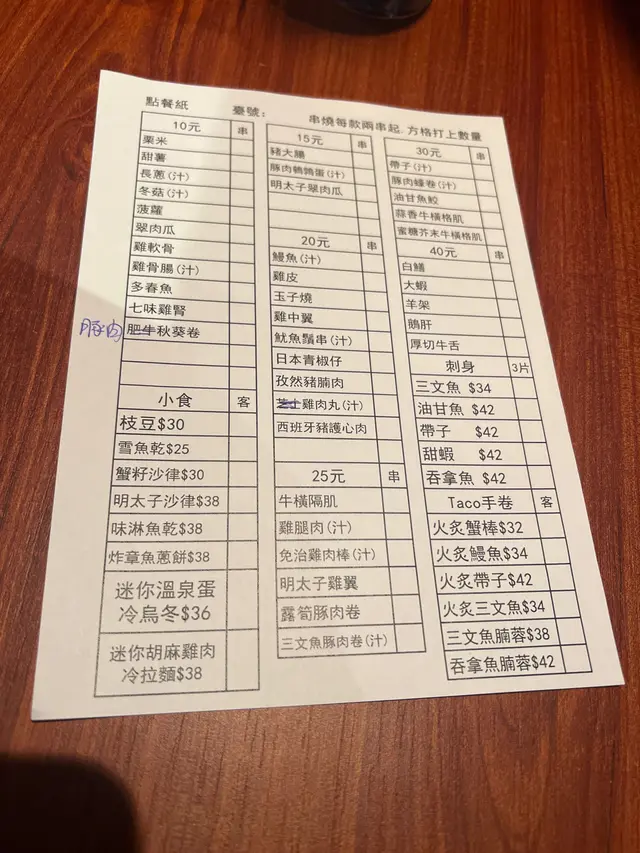 點餐紙 臺號: 串燒每款兩串起, 方格打上數量
10元 串
粟米
甜薯
長蔥(汁)
冬菇(汁)
菠蘿
翠肉瓜
雞軟骨
雞骨腸(汁)
多春魚
七味雞腎
豚肉 肥牛秋葵卷
小食 客
枝豆$30
雪魚乾$25
蟹籽沙律$30
明太子沙律$38
味淋魚乾$38
炸章魚蔥餅$38
迷你溫泉蛋
冷烏冬$36
迷你胡麻雞肉
冷拉麵$38
15元 串
豬大腸
豚肉鵪鶉蛋(汁)
明太子翠肉瓜
20元 串
鰻魚(汁)
雞皮
玉子燒
雞中翼
魷魚鬚串(汁)
日本青椒仔
孜然豬腩肉
芝士雞肉丸(汁)
西班牙豬護心肉
25元 串
牛橫隔肌
雞腿肉(汁)
免治雞肉棒(汁)
明太子雞翼
露筍豚肉卷
三文魚豚肉卷(汁)
30元 串
帶子(汁)
豚肉蠔卷(汁)
油甘魚鮫
蒜香牛橫格肌
蜜糖芥末牛橫格肌
40元 串
白鱔
大蝦
羊架
鵝肝
厚切牛舌
刺身 3片
三文魚 $34
油甘魚 $42
帶子 $42
甜蝦 $42
吞拿魚 $42
Taco手卷 客
火炙蟹棒$32
火炙鰻魚$34
火炙帶子$42
火炙三文魚$34
三文魚腩蓉$38
吞拿魚腩蓉$42